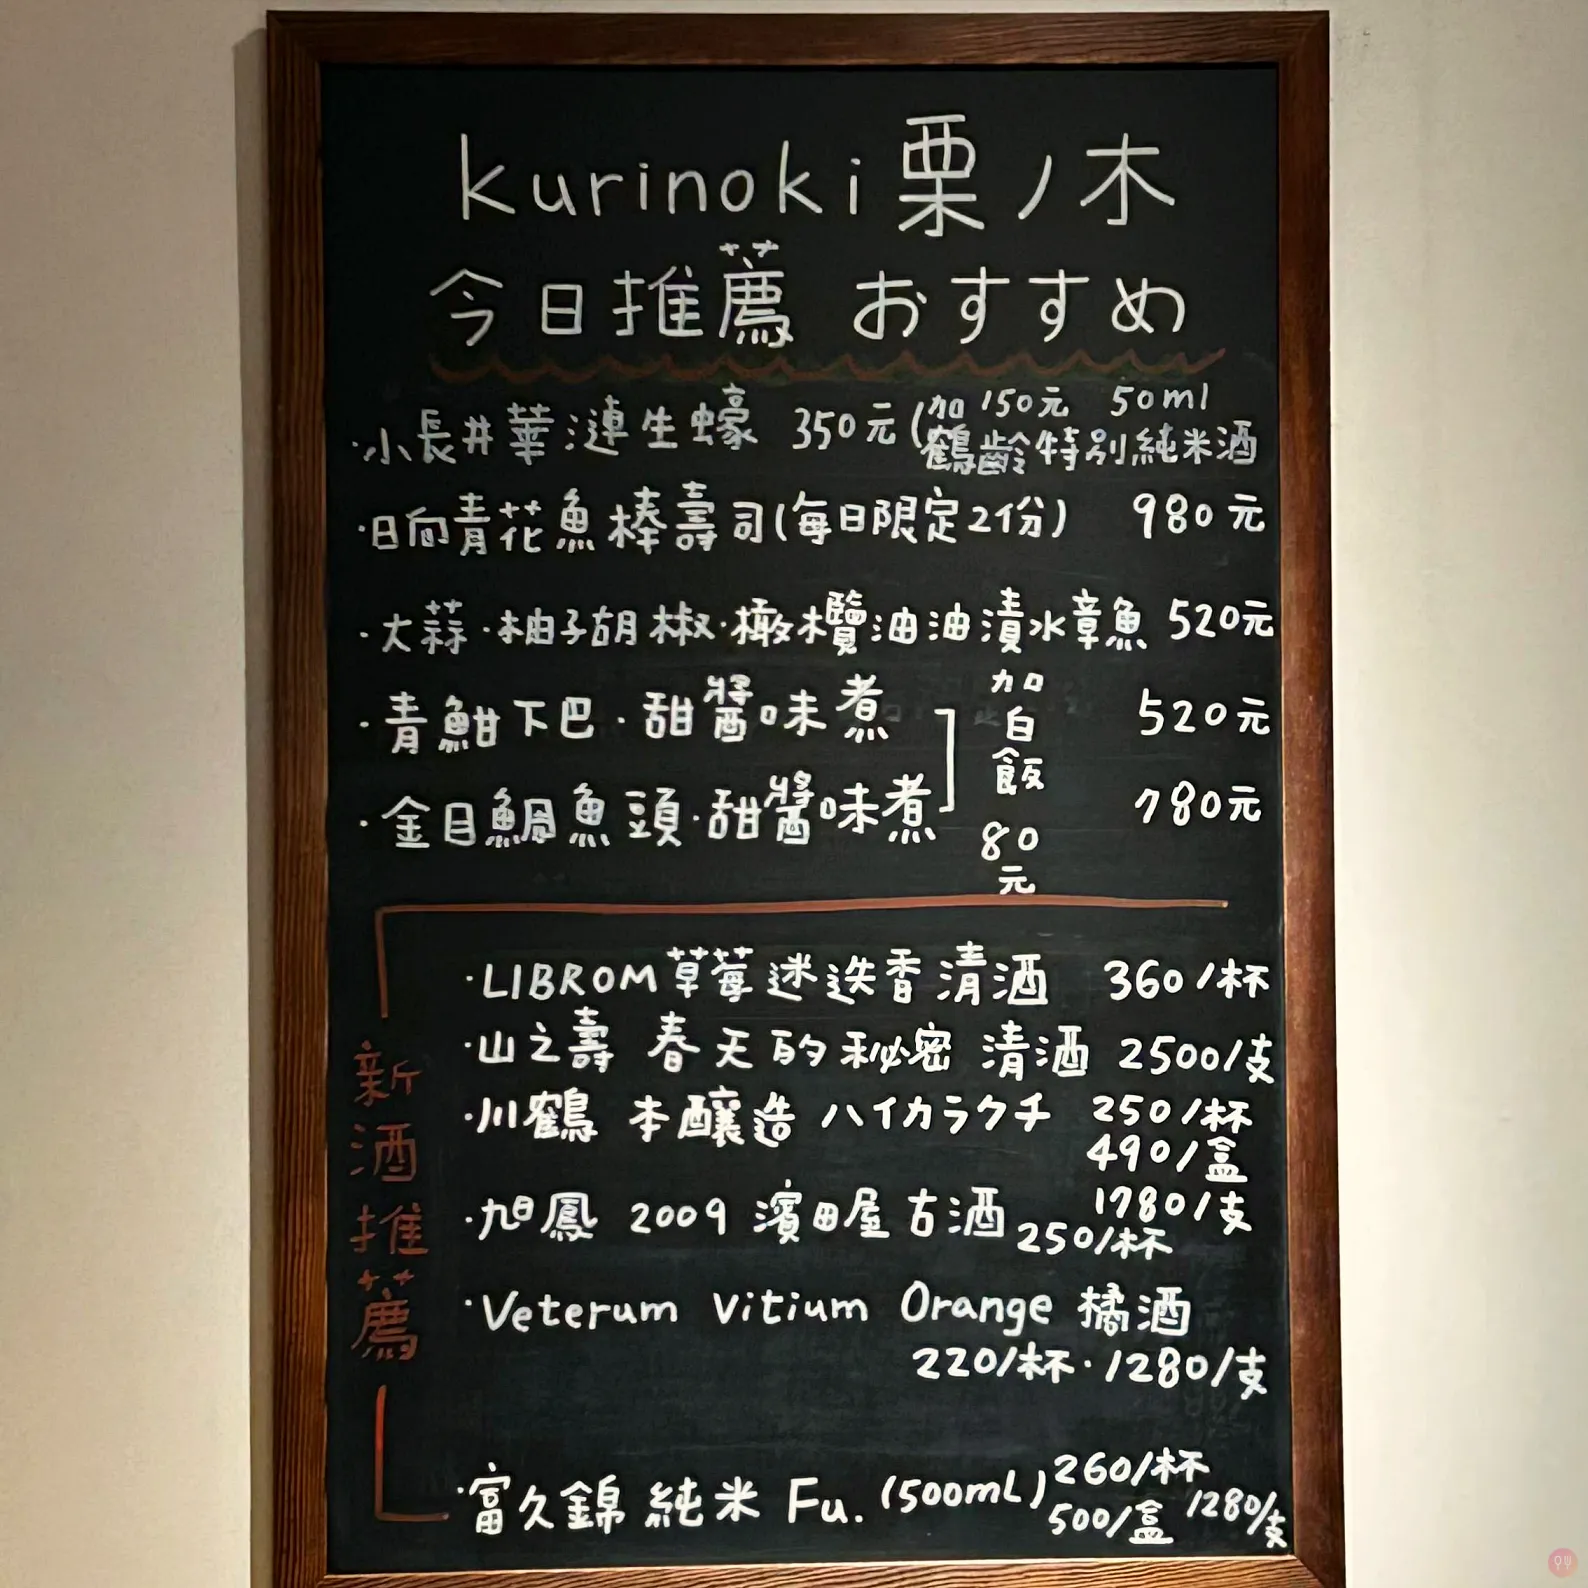 kurinoki 栗ノ木
今日推薦 おすすめ
·小長井華漣生蠔 350元(加150元 50ml
鶴齡特別純米酒
·日向青花魚棒壽司(每日限定2份) 980元
·大蒜·柚子胡椒·橄欖油油漬水章魚 520元
·青魽下巴·甜醬味煮 520元
·金目鯛魚頭·甜醬味煮 780元
加白飯80元
新酒推薦
·LIBROM草莓迷迭香清酒 360/杯
·山之壽 春天的秘密 清酒 2500/支
·川鶴 本釀造 ハイカラクチ 250/杯
490/盒
·旭鳳 2009 濱田屋古酒 1780/支
250/杯
·Veterum Vitium Orange 橘酒
220/杯·1280/支
·富久錦 純米 Fu. (500mL) 260/杯
500/盒 1280/支